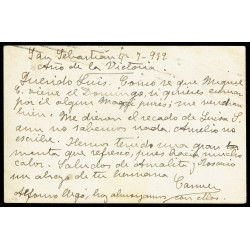 San Sebastián 9-7-939
Año de la Victoria.
Querido Luis. Como se que Miguel
E. viene el Domingo, si quieres enviar
por él algun Maggi purés; me vendrían
bien. Me dieron el recado de Luisa S.
aun no sabemos nada. Amelio no
escribe. Hemos tenido una gran tor
menta que refrescó, pues hacía mucho
calor. Saludos de Amalita y Rosario
un abrazo de tu hermana
Carmen
Alfonso Argó, hoy almorzamos con ellos.